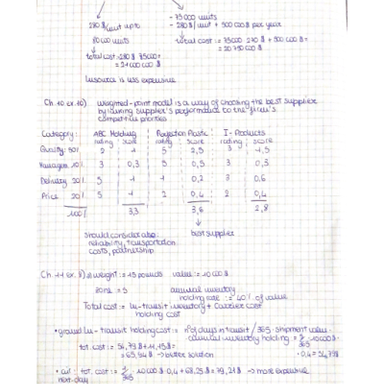 - 75000 units
280 $/unit up to - 270 $/unit + 500 000 $ per year
80 000 units
total cost: 75000 · 270 $ + 500 000 $ =
total cost: 280 · 75000 = = 20 750 000 $
= 21 000 000 $
is less expensive
Ch. 10 ex. 10) weighted-point model is a way of choosing the best supplier
by linking supplier's performance to the firm's
competitive priorities
Category: ABC Holding Perfection Plastic I-Products
rating score rating score rating score
Quality 50% 2 1 5 2,5 3 1,5
10% 3 0,3 5 0,5 3 0,3
Delivery 20% 5 1 1 0,2 3 0,6
Price 20% 5 1 2 0,4 2 0,4
100% 3,3 3,6 2,8
should consider also: best supplier
reliability, transportation
costs, partnership
Ch. 11 ex. weight: 15 pounds value: 10 000 $
annual inventory
holding rate: 40% of value
Total cost: In-transit inventory + Carrier cost
holding cost
• ground In-transit holding cost = N° of days in transit / 365 · shipment value ·
annual inventory holding · 10000 $ ·
365
tot. cost: 54,79 $ + $ = · 0,4 = 54,79 $
= 65,94 $ → better solution
• air tot. cost: 10 000 $ · 0,4 + 68,25 $ = 79,21 $ → more expensive
next-day 365